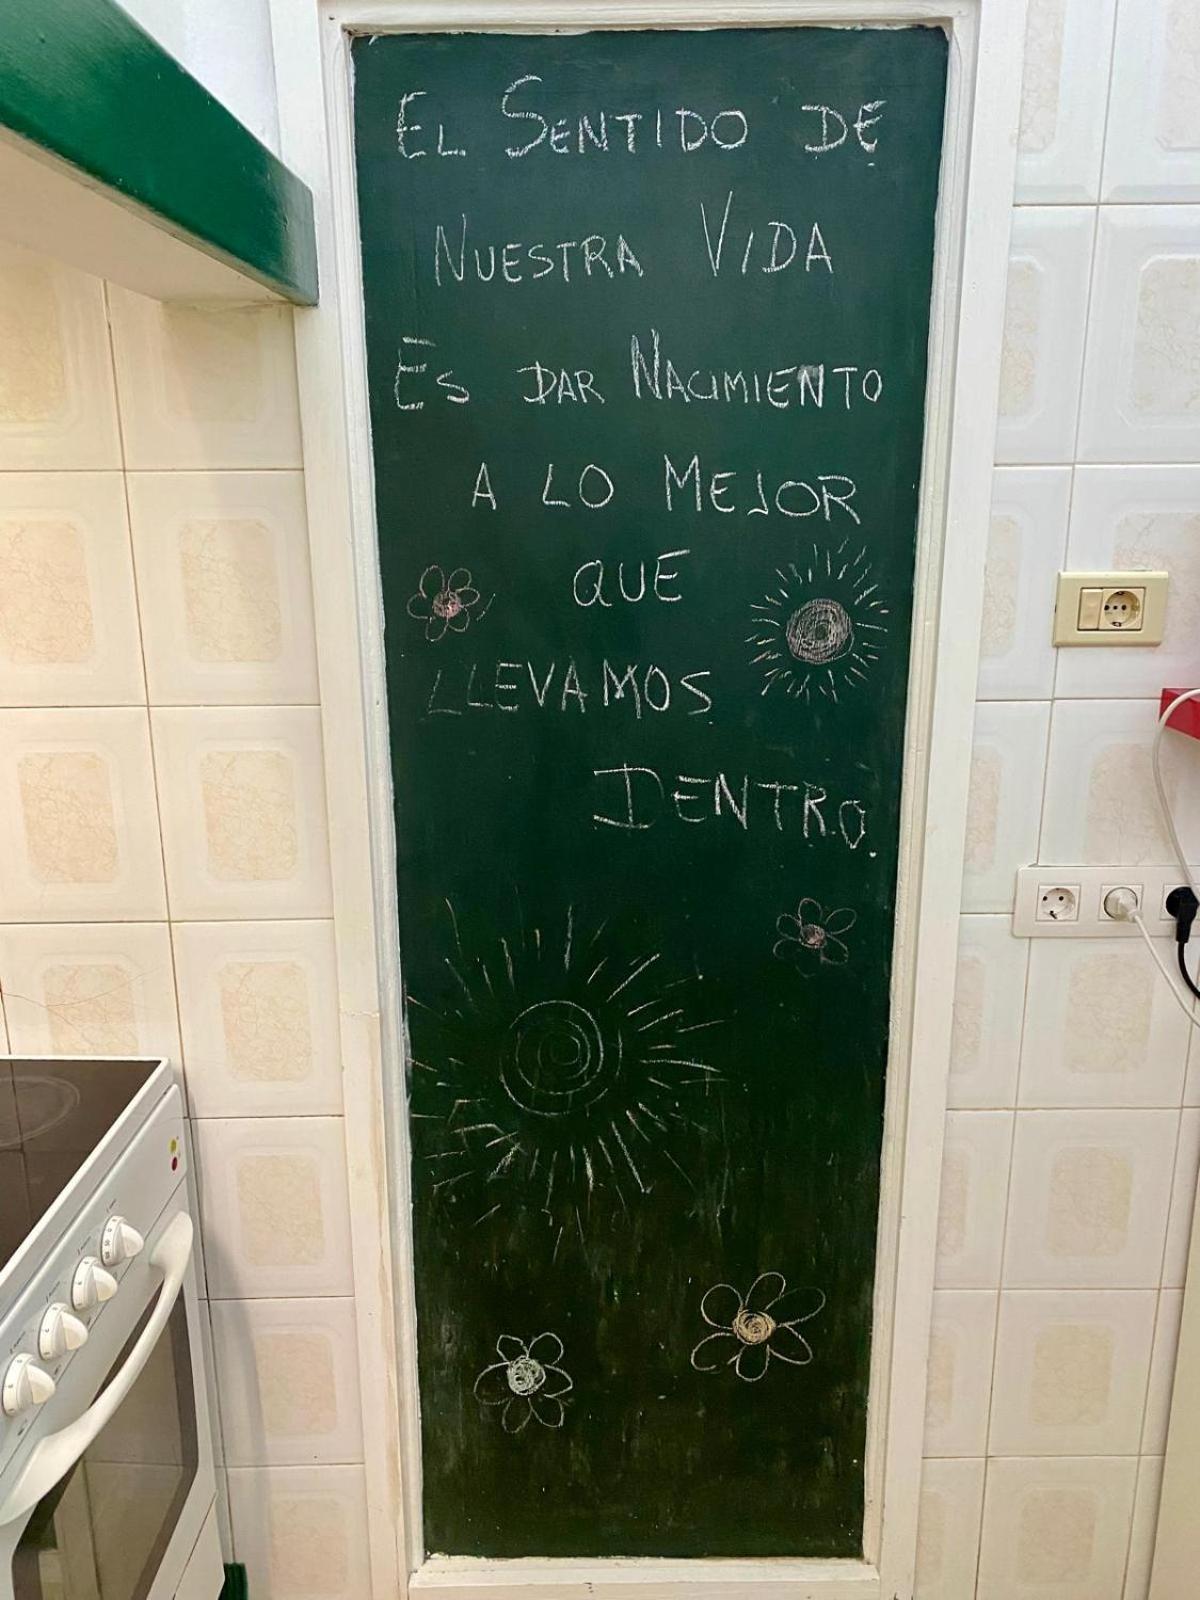 EL SENTIDO DE
NUESTRA VIDA
ES DAR NACIMIENTO
A LO MEJOR
QUE
LLEVAMOS
DENTRO.